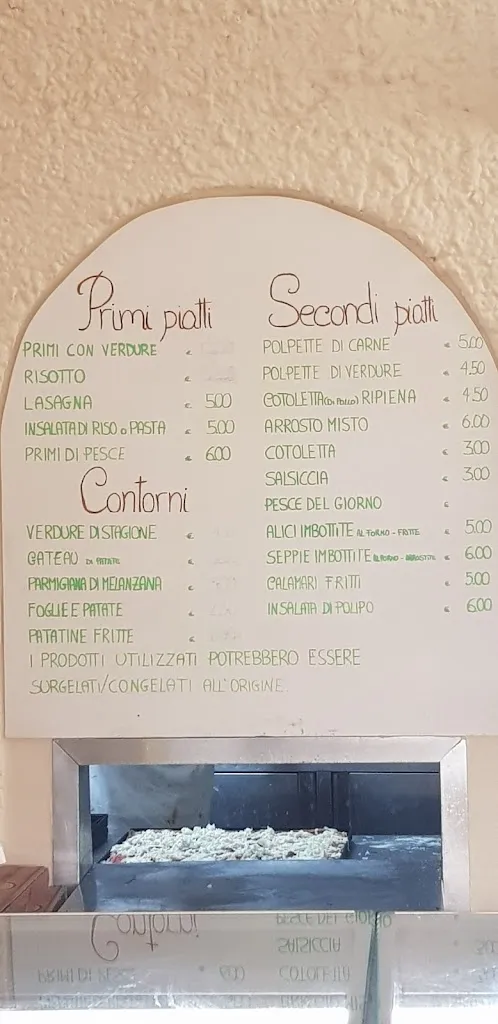 Primi piatti
PRIMI CON VERDURE €
RISOTTO €
LASAGNA € 5.00
INSALATA DI RISO o PASTA € 5.00
PRIMI DI PESCE € 6.00
Contorni
VERDURE DI STAGIONE €
GATEAU DI PATATE €
PARMIGIANA DI MELANZANA €
FOGLIE E PATATE €
PATATINE FRITTE €
Secondi piatti
POLPETTE DI CARNE € 5.00
POLPETTE DI VERDURE € 4.50
COTOLETTA (DI POLLO) RIPIENA € 4.50
ARROSTO MISTO € 6.00
COTOLETTA € 3.00
SALSICCIA € 3.00
PESCE DEL GIORNO €
ALICI IMBOTTITE AL FORNO - FRITTE € 5.00
SEPPIE IMBOTTITE AL FORNO - ARROSTITE € 6.00
CALAMARI FRITTI € 5.00
INSALATA DI POLIPO € 6.00
I PRODOTTI UTILIZZATI POTREBBERO ESSERE
SURGELATI/CONGELATI ALL'ORIGINE.